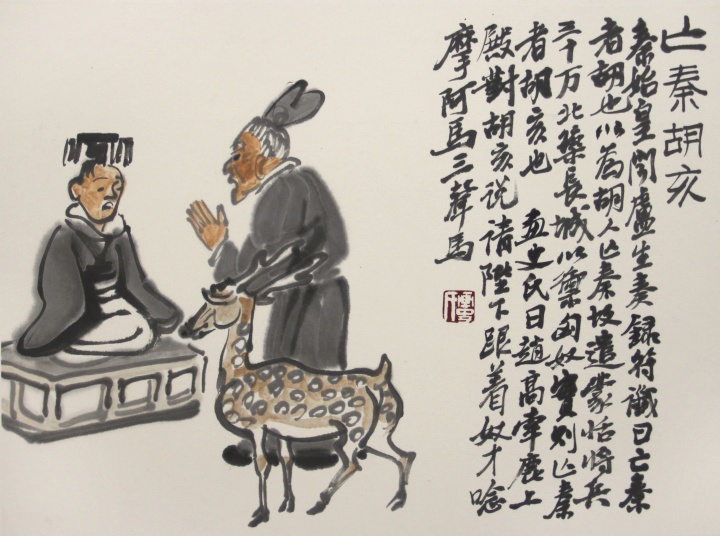 亡秦胡亥
秦始皇闻盧生奏録符谶曰亡秦
者胡也以為胡人亡秦故遣蒙恬将兵
三十万北築長城以禦匈奴實则亡秦
者胡亥也 画史氏曰趙高牵鹿上
殿對胡亥说請陛下跟着奴才唸
摩阿馬三聲馬